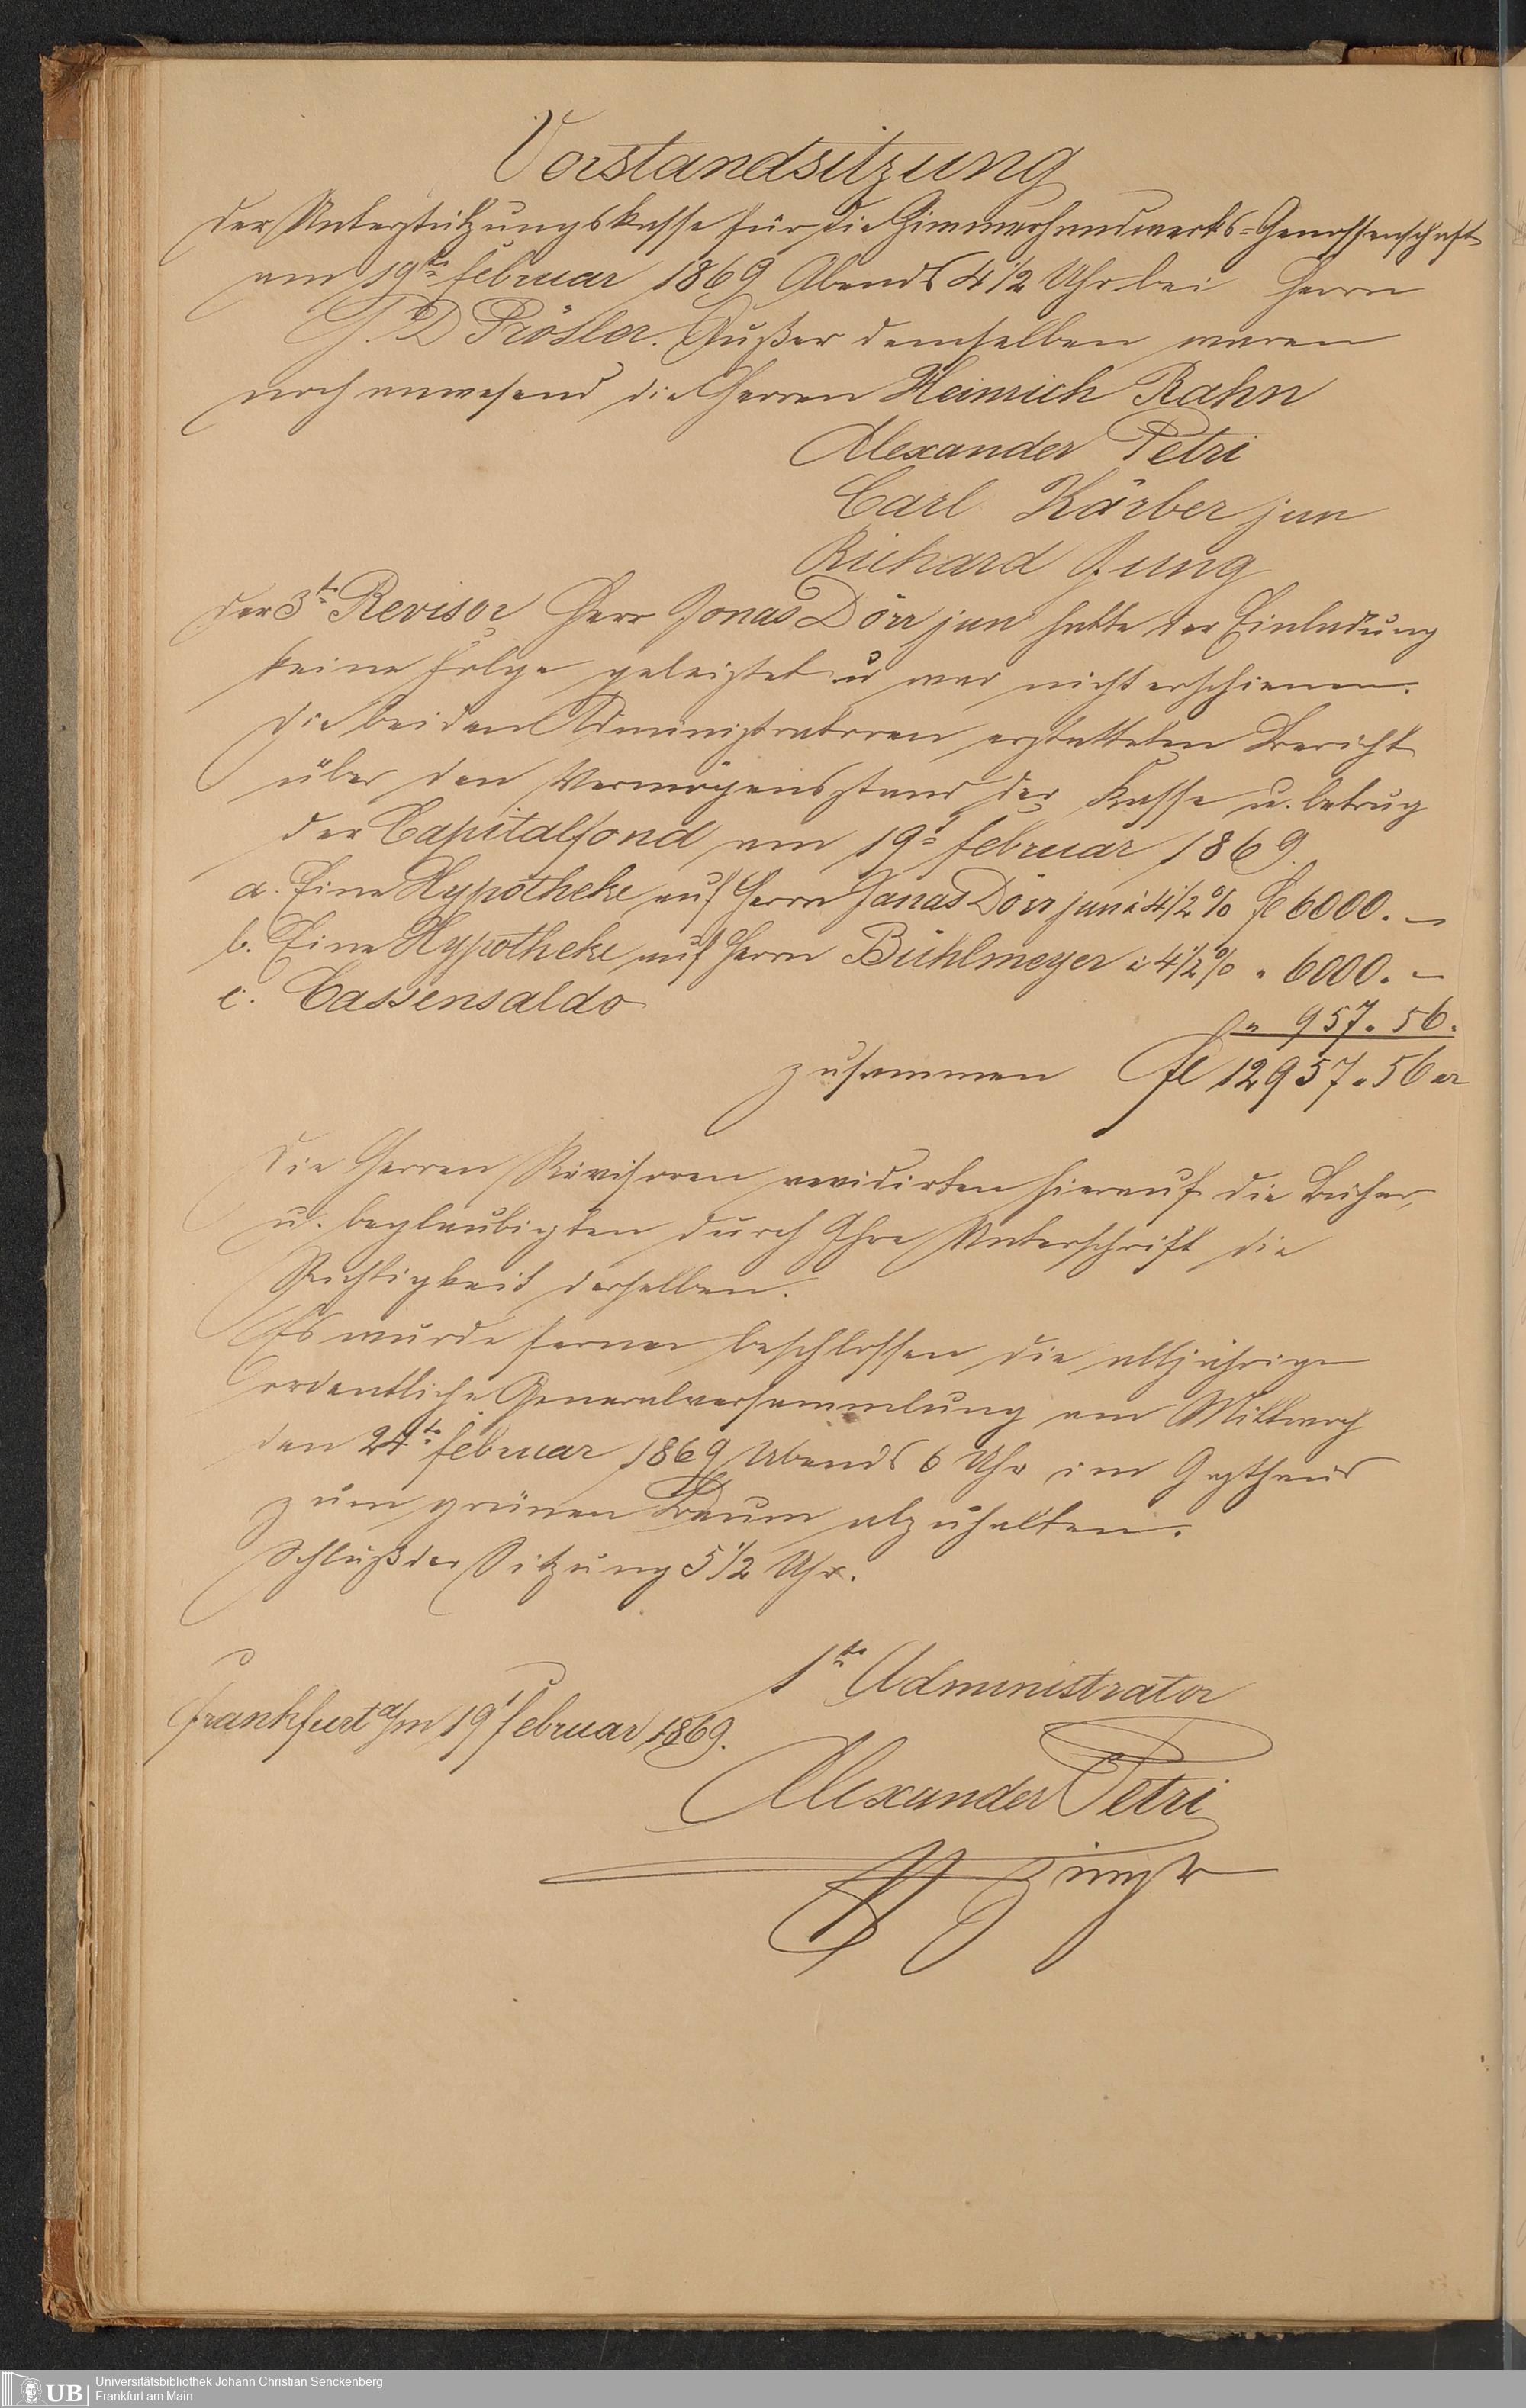 Vorstandsitzung
der Unterstützungskasse für die Zimmerhandwerks=Genossenschaft
am 19te Februar 1869 Abends 4 1/2 Uhr bei Herrn
J. D Prösler. Außer demselben waren
noch anwesend die Herren Heinrich Rahn
Alexander Petri
Carl Kärber jun
Richard Jung
der 3te Revisor Herr Jonas Dörr jun hatte der Einladung
keine Folge geleistet u war nicht erschienen.
Die beiden Administratoren erstatteten Bericht
über den Vermögensstand der Kasse u. betrug
der Capitalfond am 19t Februar 1869.
a. Eine Hypotheke auf Herrn Jonas Dörr jun à 4 1/2 % fl 6000. –
b. Eine Hypotheke auf Herrn Bühlmeyer à 4 1/2 % " 6000. –
c. Cassensaldo
" 957. 56.
zusammen fl 12957. 56 xr
Die Herren Revisoren revidirten hierauf die Bücher,
u. beglaubigten durch Ihre Unterschrift die
Richtigkeit derselben.
Es wurde ferner beschlossen die alljährige
ordentliche Generalversammlung am Mittwoch
den 24te Februar 1869 Abends 6 Uhr im Gasthaus
zum grünen Baum abzuhalten.
Schluß der Sitzung 5 1/2 Uhr.
1te Administrator
Frankfurt a/m 19t Februar 1869.
Alexander Petri
Universitätsbibliothek Johann Christian Senckenberg
UB Frankfurt am Main